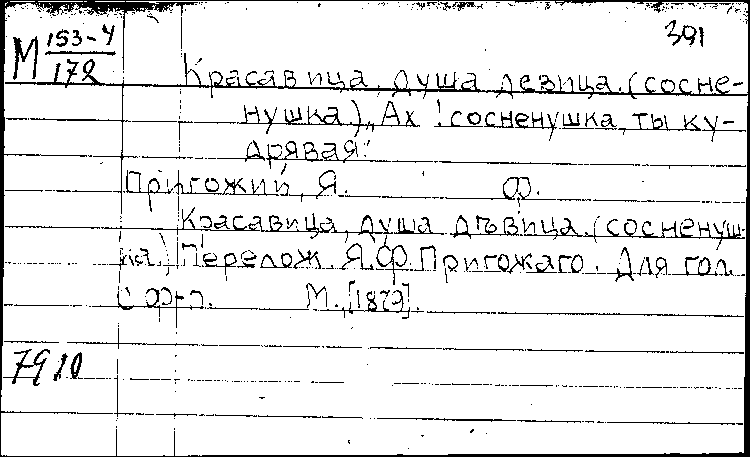 М 153-4/172
391
Красавица, душа девица. (сосне-
нушка.) „Ах! сосненушка, ты ку-
дрявая"
Пригожий, Я. Ф.
Красавица, душа дѣвица. (сосненуш-
ка.) Перелож. Я.Ф. Пригожаго. Для гол.
с ф-п. М., [1879].
7910